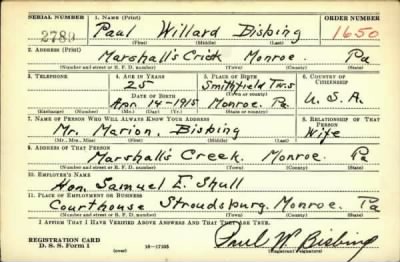 SERIAL NUMBER 1. NAME (Print) ORDER NUMBER
2789 Paul Willard Bisbing 1650
(First) (Middle) (Last)
2. ADDRESS (Print)
Marshall's Crick Monroe. Pa
(Number and street or R. F. D. number) (Town) (County) (State)
3. TELEPHONE 4. AGE IN YEARS 5. PLACE OF BIRTH 6. COUNTRY OF CITIZENSHIP
25 Smithfield Twns
DATE OF BIRTH (Town or county)
Apr. 14-1915 Monroe. Pa. U.S.A.
(Exchange) (Number) (Mo.) (Day) (Yr.) (State or country)
7. NAME OF PERSON WHO WILL ALWAYS KNOW YOUR ADDRESS 8. RELATIONSHIP OF THAT PERSON
Mr. Marion. Bisbing Wife
(Mr., Mrs., Miss) (First) (Middle) (Last)
9. ADDRESS OF THAT PERSON
Marshall's Creek. Monroe. Pa
(Number and street or R. F. D. number) (Town) (County) (State)
10. EMPLOYER'S NAME
Hon. Samuel E. Shull
11. PLACE OF EMPLOYMENT OR BUSINESS
Courthouse Stroudsburg. Monroe. Pa
(Number and street or R. F. D. number) (Town) (County) (State)
I AFFIRM THAT I HAVE VERIFIED ABOVE ANSWERS AND THAT THEY ARE TRUE.
REGISTRATION CARD
D. S. S. Form 1 (over) 16-17105 Paul W. Bisbing
(Registrant's signature)